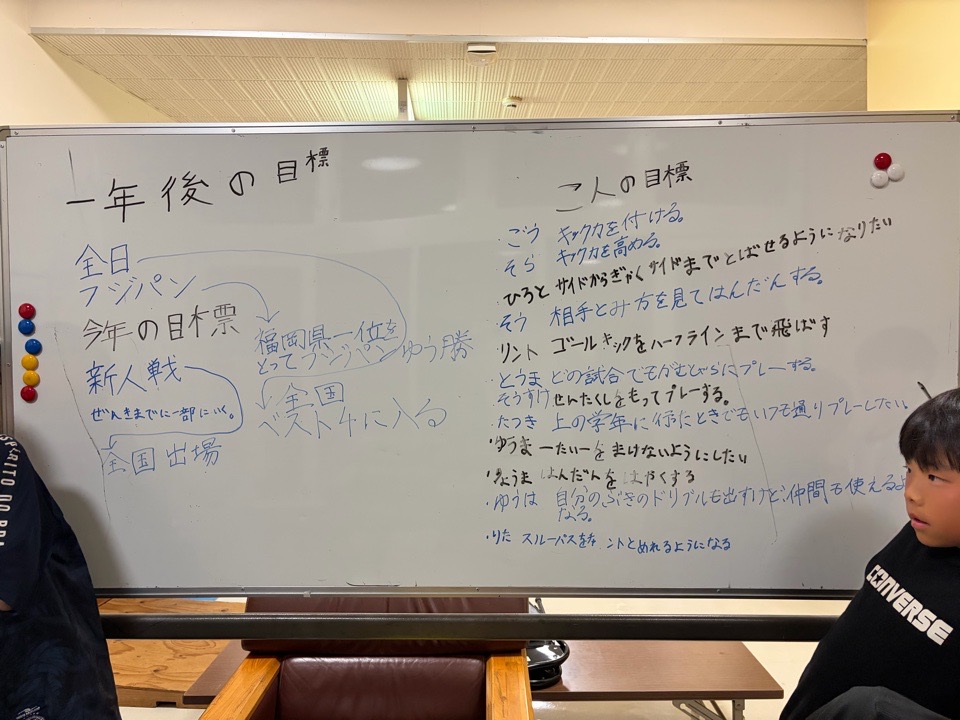 一年後の目標
全日
フジパン
福岡県一位を
とってフジパンゆう勝
全国
ベスト4に入る
今年の目標
新人戦
ぜんきまでに一部にいく。
全国出場
個人の目標
・ごう キック力を付ける。
・そら キック力を高める。
・ひろと サイドからぎゃくサイドまでとばせるようになりたい
・そう 相手とみ方を見てはんだんする。
・リント ゴールキックをハーフラインまで飛ばす
・とうま どの試合でもがむしゃらにプレーする。
・そうすけ せんたくしをもってプレーする。
・たつき 上の学年に行たときでもいつも通りプレーしたい。
・ゆうま 一たい一をまけないようにしたい
・りょうま はんだんをはやくする
・ゆうは 自分のぶきのドリブルも出すけど、仲間も使えるよ
なる。
・りた スルーパスを ントとめれるようになる
CONVERSE